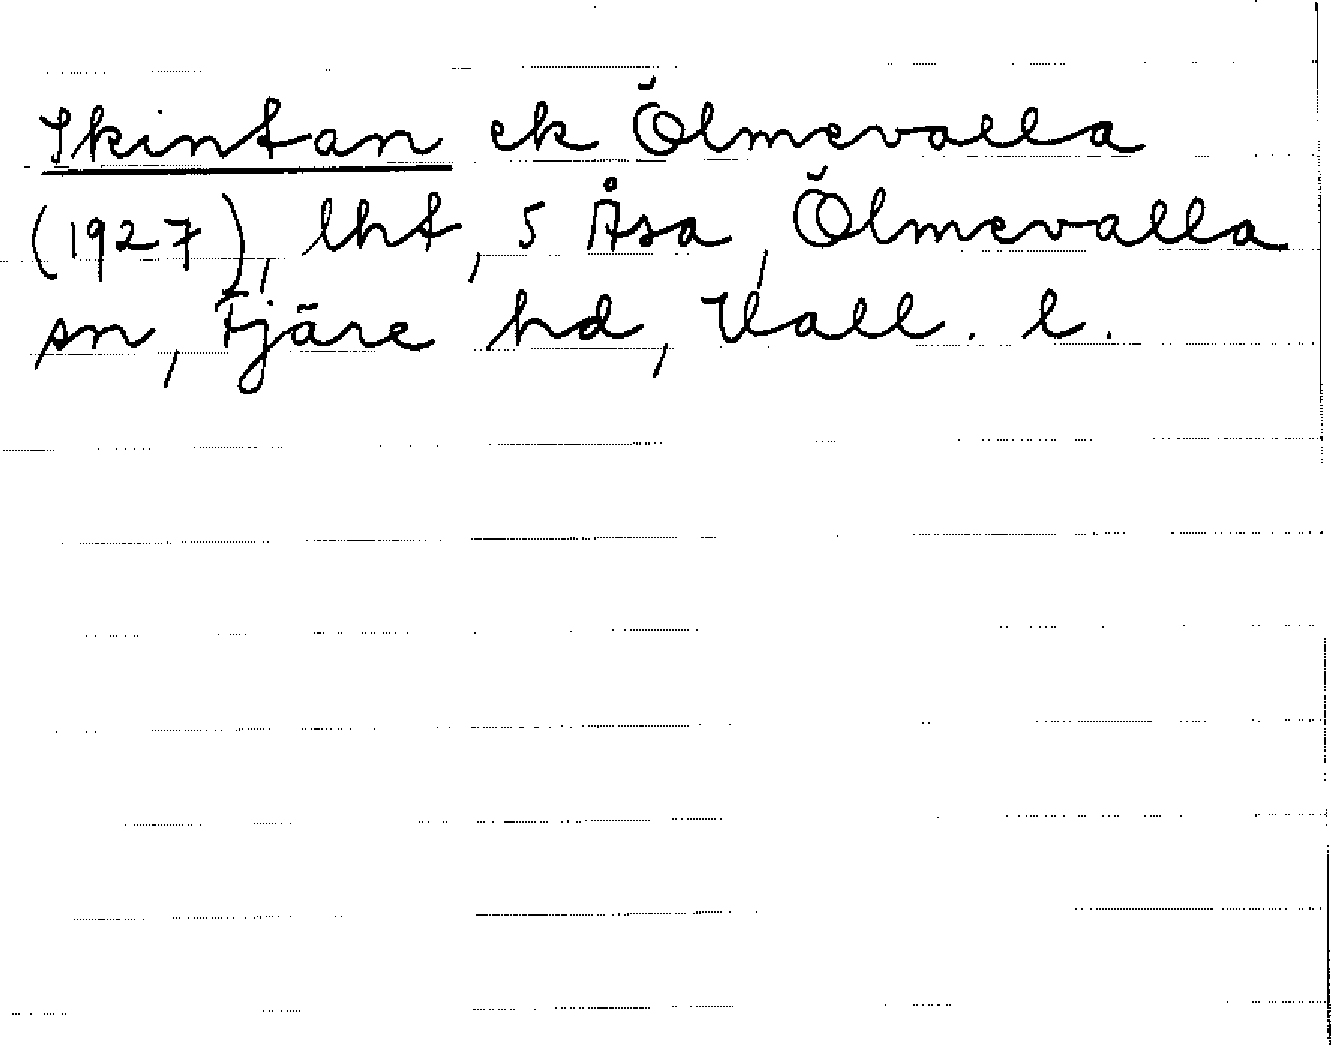 Skintan ek Ölmevalla
(1927), lht, 5 Åsa, Ölmevalla
sn, Fjäre hd, Hall. l.